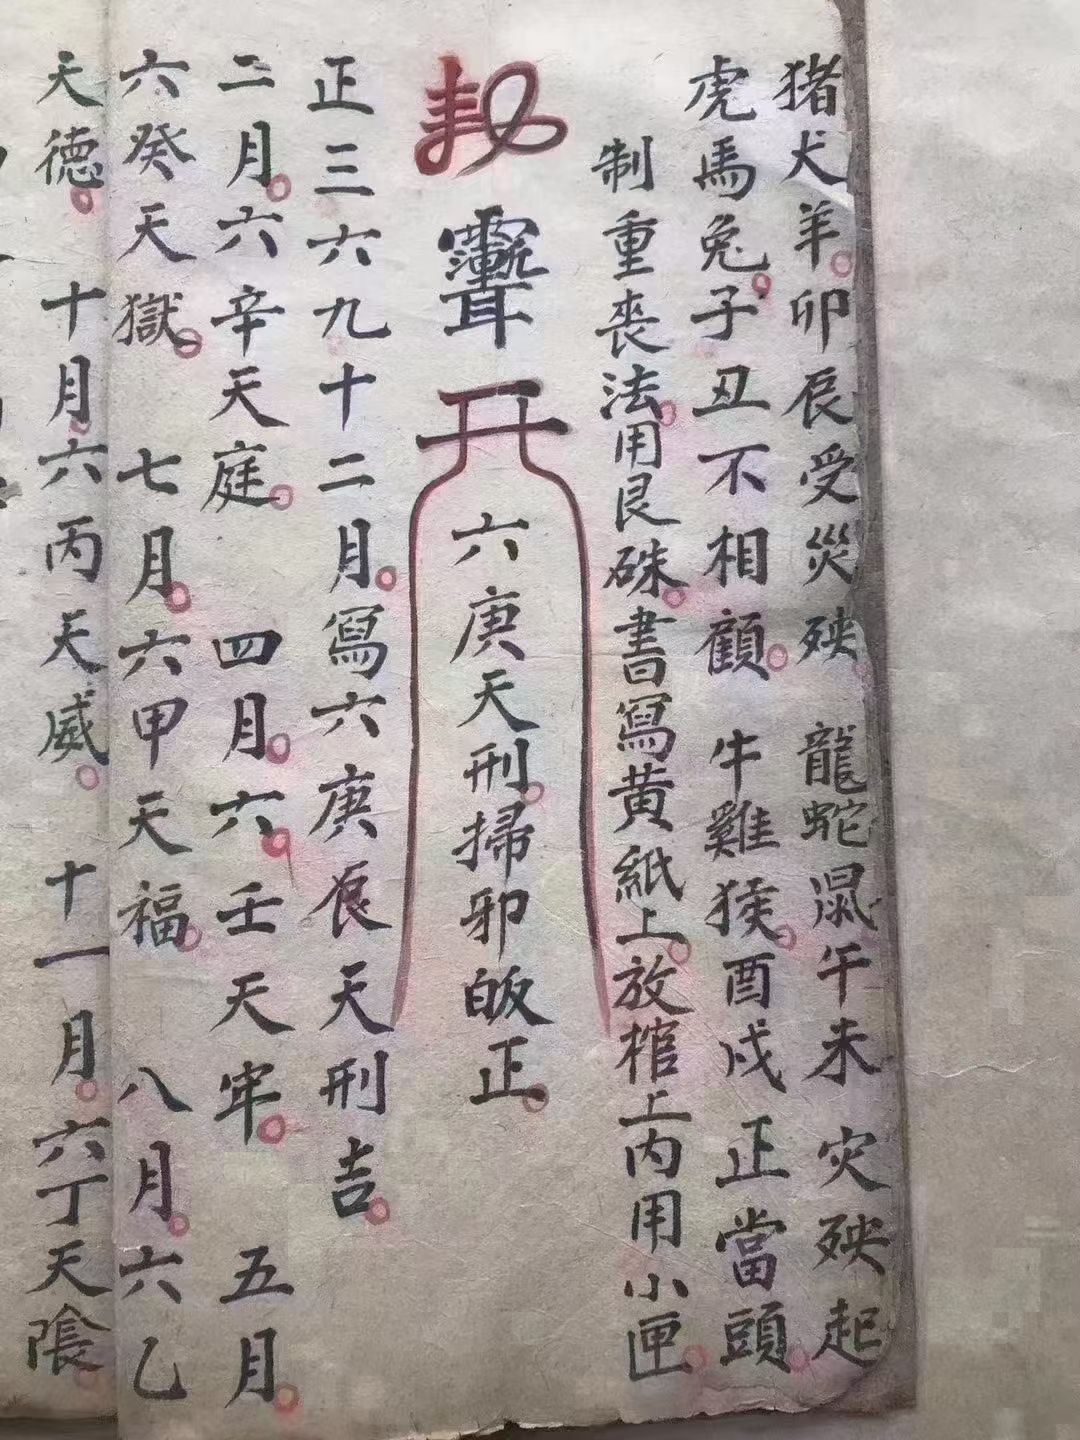 猪犬羊卯辰受災殃龍蛇鼠午未灾殃起
虎馬兔子丑不相顧牛雞猴酉戌正當頭
制重喪法用艮硃書寫黄紙上放棺上内用小匣
六庚天刑掃邪皈正
正三六九十二月寫六庚天刑吉
二月六辛天庭四月六壬天牢五月
六癸天獄七月六甲天福八月六乙
天德十月六丙天威十一月六丁天陰